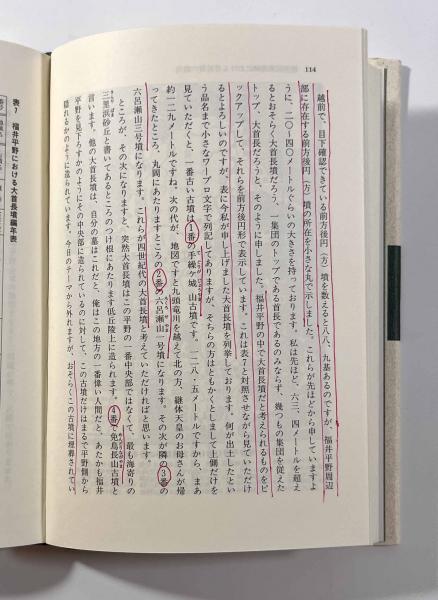 114
越前で、目下確認できている前方後円(方)墳を数えると八八、九基あるのですが、福井平野周辺
部に存在する前方後円(方)墳の所在を小さな丸で示しました。これらが先ほどから申していますよ
うに、二〇―四〇メートルぐらいの大きさを持っております。私は先ほど、六三、四メートルを超え
るとおそらく大首長墳だろう、一集団のトップである首長であるのみならず、幾つもの集団を従えた
トップ、大首長だろうと、そのように申しました。福井平野の中で大首長墳だと考えられるものをピ
ックアップして、それらを前方後円形で表示しています。これは表7と対照させながら見ていただけ
るとよろしいのですが、表に今私が申し上げました大首長墳を列挙しております。何が出土したとい
う品名まで小さなワープロ文字で列記してありますが、そちらの方はともかくとしまして上側だけを
見ていただくと、一番古い古墳は1番の手繰ケ城山古墳です。一二八・五メートルですから、まあ
約一二九メートルですね。次の代が、地図ですと九頭竜川を越えて北の方、継体天皇のお母さんが帰
ってきたところ、丸岡にあたりますところの2番の六呂瀬山一号墳になります。その次が隣の3番の
六呂瀬山三号墳になります。これらが四世紀代の大首長墳と考えていただければと思います。
ところが、その次になりますと、突然大首長墳はこの平野の一番中央部ではなくて、最も海寄りの
三里浜砂丘と書いてあるところのつけ根にあたります低丘陵上に造られます。4番で免鳥長山古墳と
言います。他の大首長墳は、自分の墓はこれだと、俺はこの地方の一番偉い人間だと、あたかも福井
平野を見下ろすかのようにその中央部に造られているのに対して、この古墳だけはまるで平野側から
隠れるかのように造られています。今日のテーマから外れますが、おそらくこの古墳に埋葬されてい
表7 福井平野における大首長墳編年表